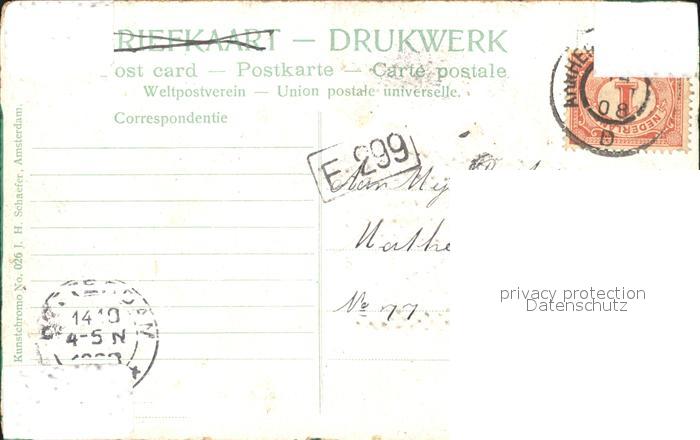 RIEFKAART — DRUKWERK
ost card — Postkarte — Carte postale
Weltpostverein — Union postale universelle.
Correspondentie
Kunstchromo No. 026 J. H. Schaefer, Amsterdam.
08
D
1
NEDERL
E 299
Aan Mej
No 77
14 10
4-5 N
privacy protection
Datenschutz